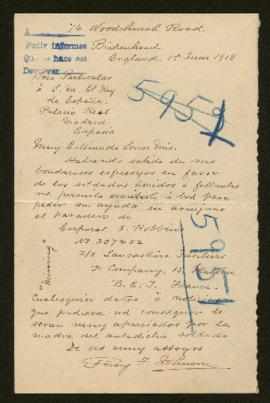 74 Woodchurch Road.
A
Pedir informes
Birkenhead.
Que se hace así
England. 1st June 1918
Devolver
5959
Particular
á S. M. El Rey
de España.
Palacio Real
Madrid.
España
Muy Estimado Senor Mio.
Habiendo sabido de sus
bondadosos esfuerzos en favor
de los soldados heridos ó
me permito escribirle á Vd para
pedir su ayuda en
el paradero de
Corporal
No 307402
2/8 Lancashire Fusiliers
D Company,
B. E. F. France.
"Missing"
Cualesquier datos ó noticias
que pudiera Vd conseguir le
seran muy apreciados por la
madre del antedicho soldado
De Vd muy